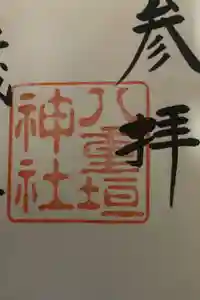 参拝
八重垣
神社